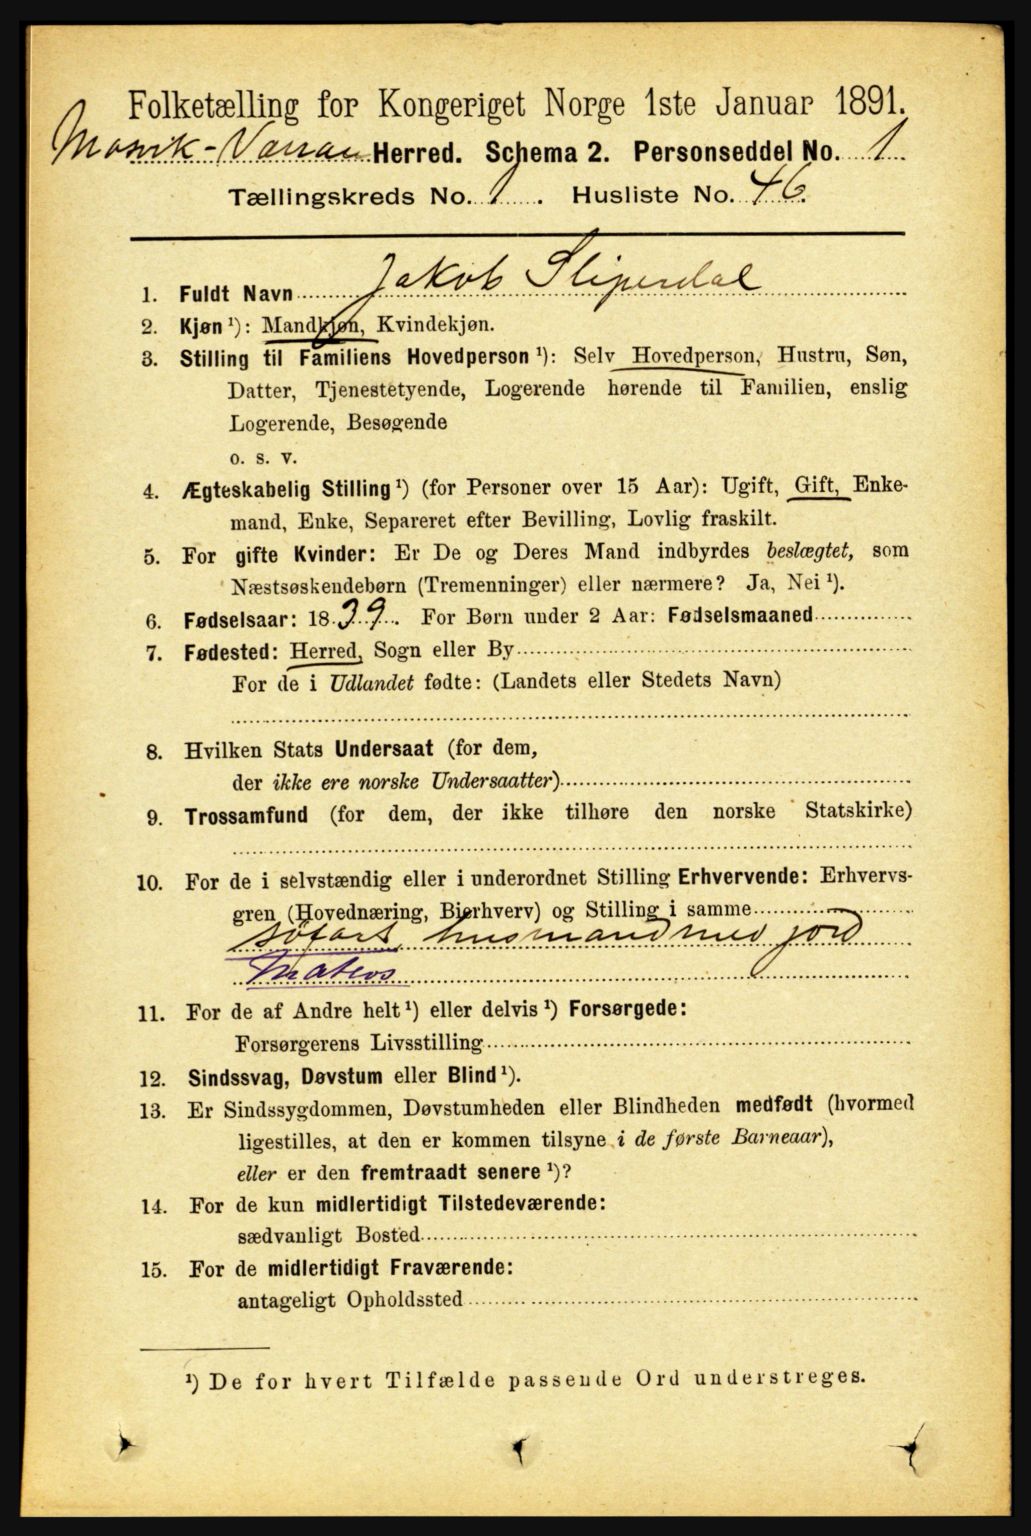 Folketælling for Kongeriget Norge 1ste Januar 1891.
Mosvik-Værran Herred. Schema 2. Personseddel No. 1
Tællingskreds No. 1. Husliste No. 46.
1. Fuldt Navn Jakob Sliperdal
2. Kjøn ¹): Mandkjøn, Kvindekjøn.
3. Stilling til Familiens Hovedperson ¹): Selv Hovedperson, Hustru, Søn,
Datter, Tjenestetyende, Logerende hørende til Familien, enslig
Logerende, Besøgende
o. s. v.
4. Ægteskabelig Stilling ¹) (for Personer over 15 Aar): Ugift, Gift, Enke-
mand, Enke, Separeret efter Bevilling, Lovlig fraskilt.
5. For gifte Kvinder: Er De og Deres Mand indbyrdes beslægtet, som
Næstsøskendebørn (Tremenninger) eller nærmere? Ja, Nei ¹).
6. Fødselsaar: 1839. For Børn under 2 Aar: Fødselsmaaned
7. Fødested: Herred, Sogn eller By
For de i Udlandet fødte: (Landets eller Stedets Navn)
8. Hvilken Stats Undersaat (for dem,
der ikke ere norske Undersaatter)
9. Trossamfund (for dem, der ikke tilhøre den norske Statskirke)
10. For de i selvstændig eller i underordnet Stilling Erhvervende: Erhvervs-
gren (Hovednæring, Bierhverv) og Stilling i samme
søfart, husmand med jord
Matros
11. For de af Andre helt ¹) eller delvis ¹) Forsørgede:
Forsørgerens Livsstilling
12. Sindssvag, Døvstum eller Blind ¹).
13. Er Sindssygdommen, Døvstumheden eller Blindheden medfødt (hvormed
ligestilles, at den er kommen tilsyne i de første Barneaar),
eller er den fremtraadt senere ¹)?
14. For de kun midlertidigt Tilstedeværende:
sædvanligt Bosted
15. For de midlertidigt Fraværende:
antageligt Opholdssted
¹) De for hvert Tilfælde passende Ord understreges.